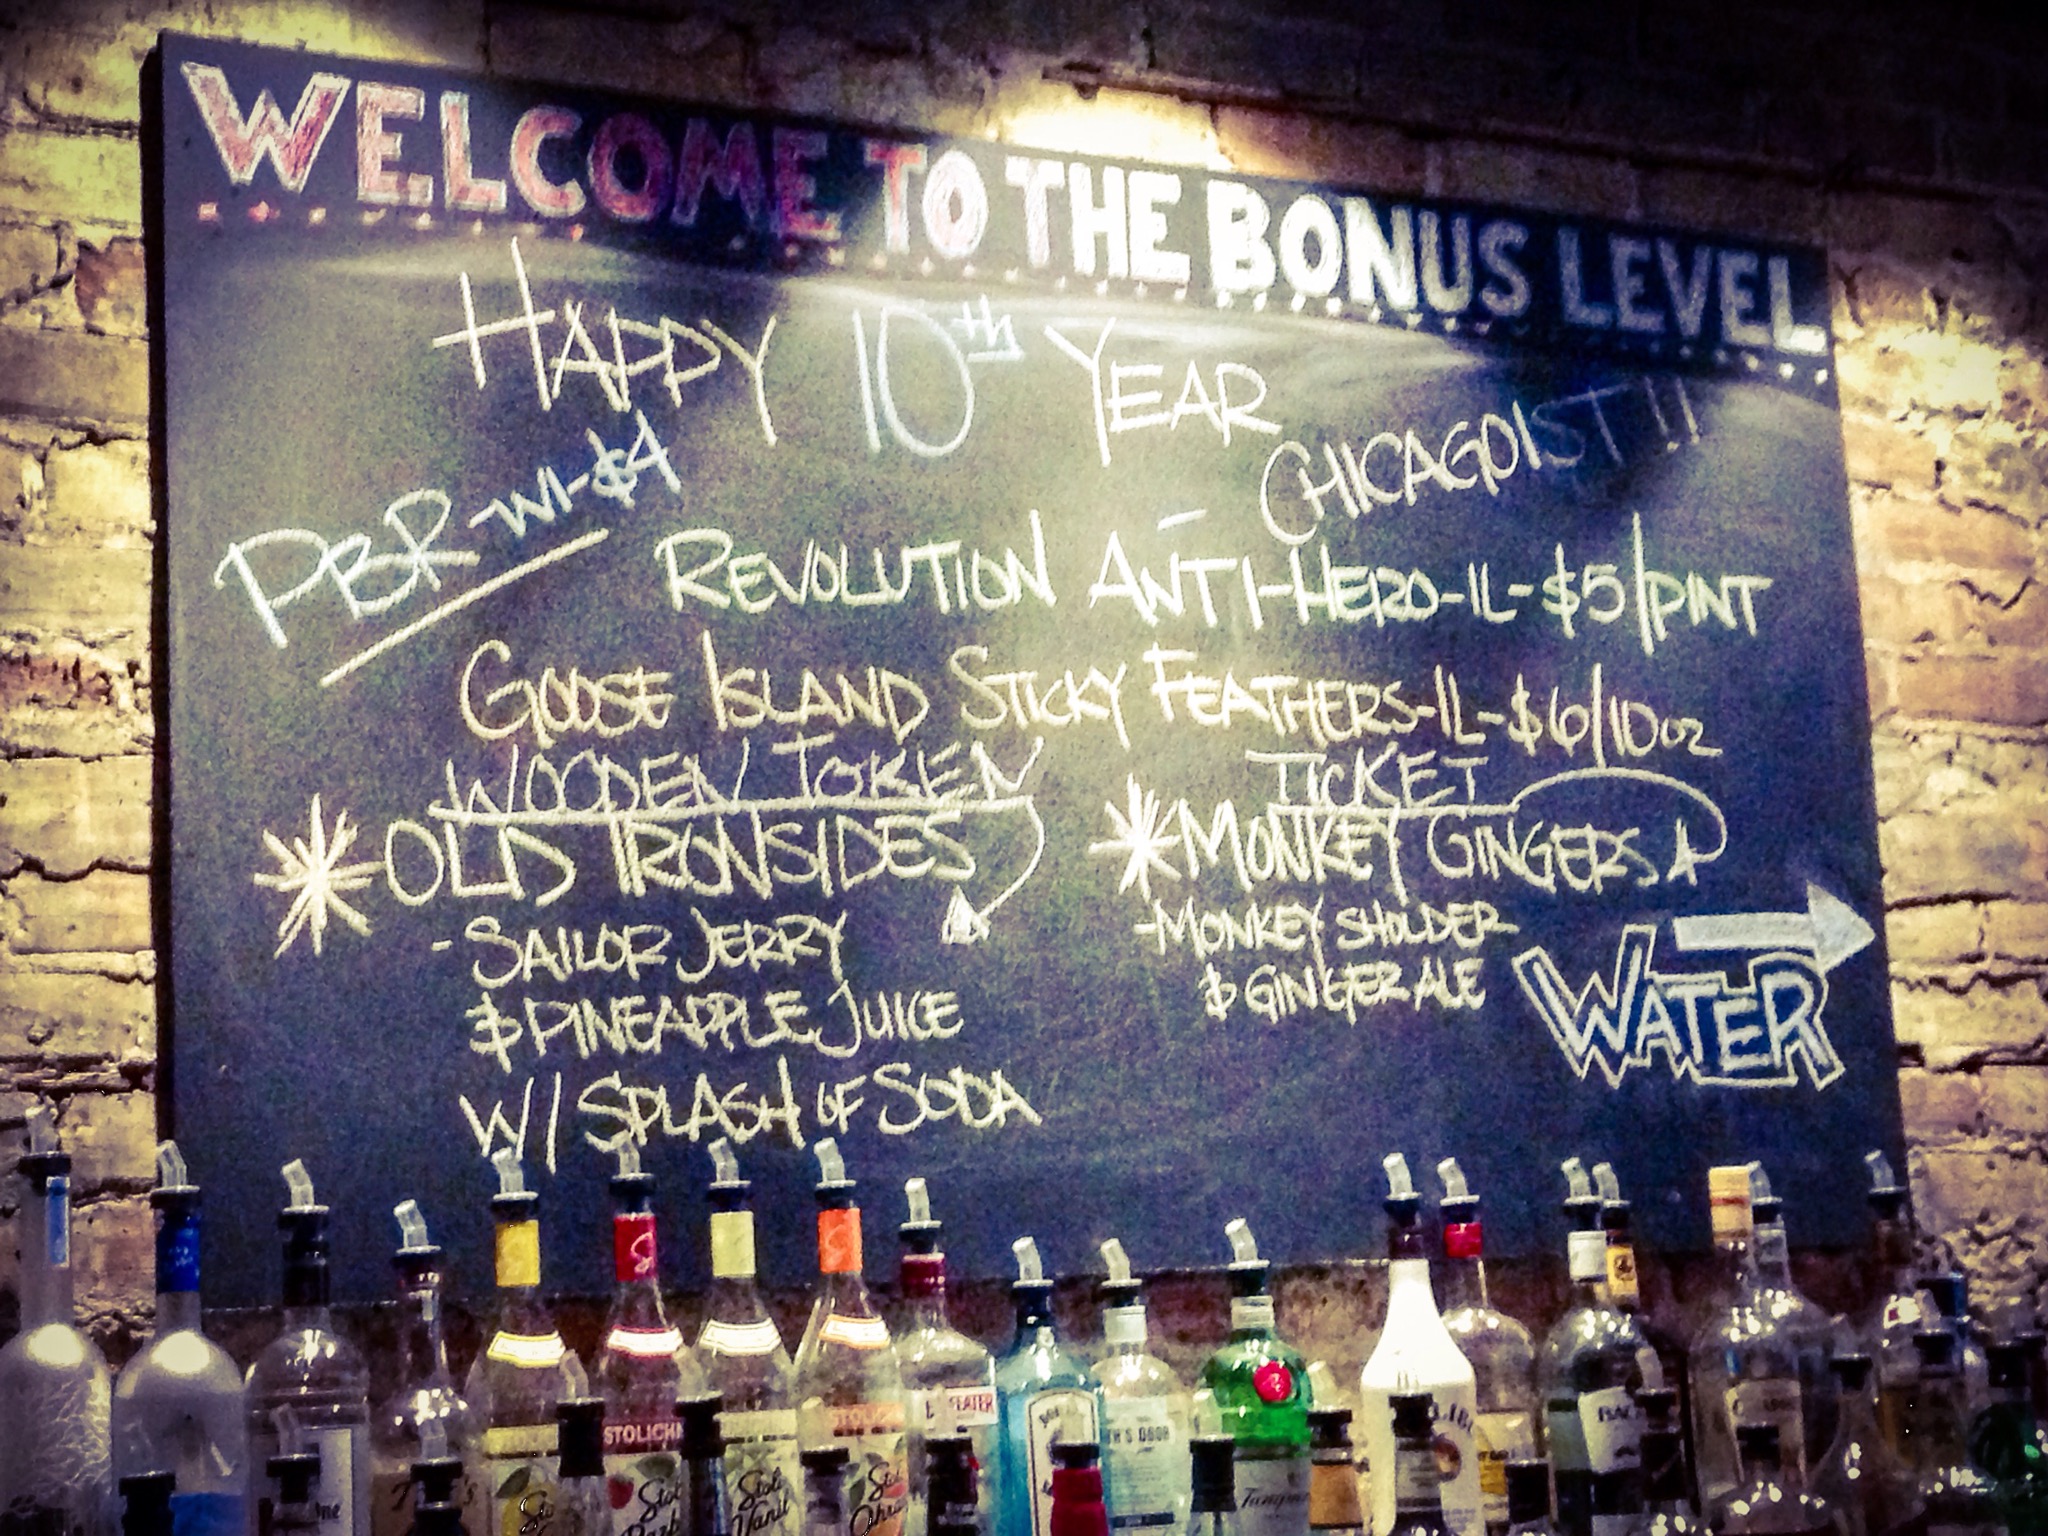 WELCOME TO THE BONUS LEVEL
HAPPY 10th YEAR
CHICAGOIST!!
PBR-WI-$4
REVOLUTION ANTI-HERO-IL-$5/PINT
GOOSE ISLAND STICKY FEATHERS-IL-$6/10oz
WOODEN TOKEN
OLD IRONSIDES
-SAILOR JERRY
& PINEAPPLE JUICE
W/ SPLASH OF SODA
TICKET
MONKEY GINGERS
-MONKEY SHOLDER
& GINGER ALE
WATER
STOLICHN
Stol
Vanil
Stol
Ohra